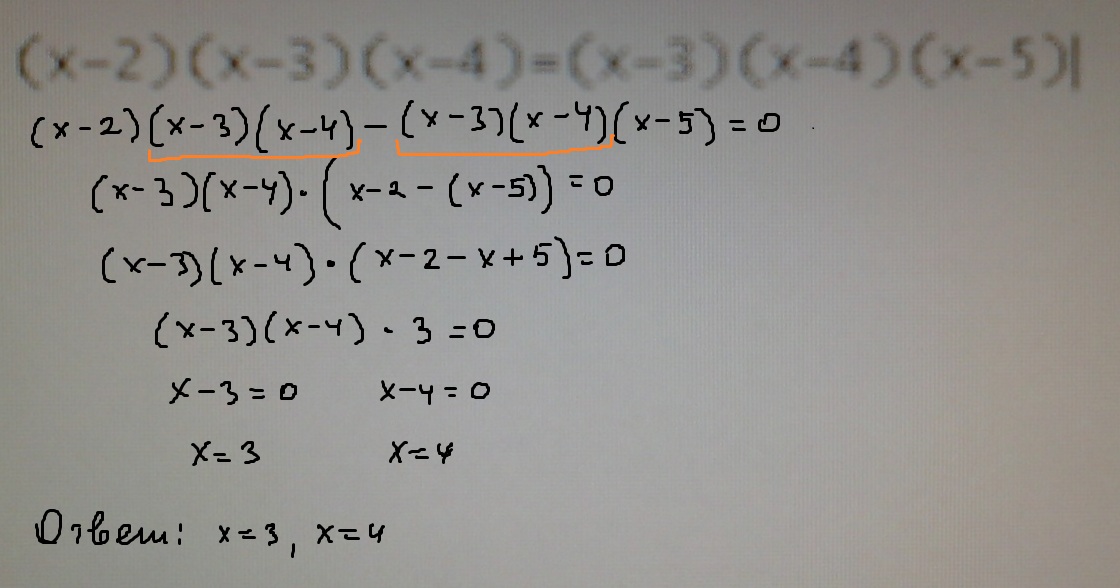 (x-2)(x-3)(x-4)=(x-3)(x-4)(x-5)|
(x-2)(x-3)(x-4)-(x-3)(x-4)(x-5)=0
(x-3)(x-4)·(x-2-(x-5))=0
(x-3)(x-4)·(x-2-x+5)=0
(x-3)(x-4)·3=0
x-3=0 x-4=0
x=3 x=4
Ответ: x=3, x=4